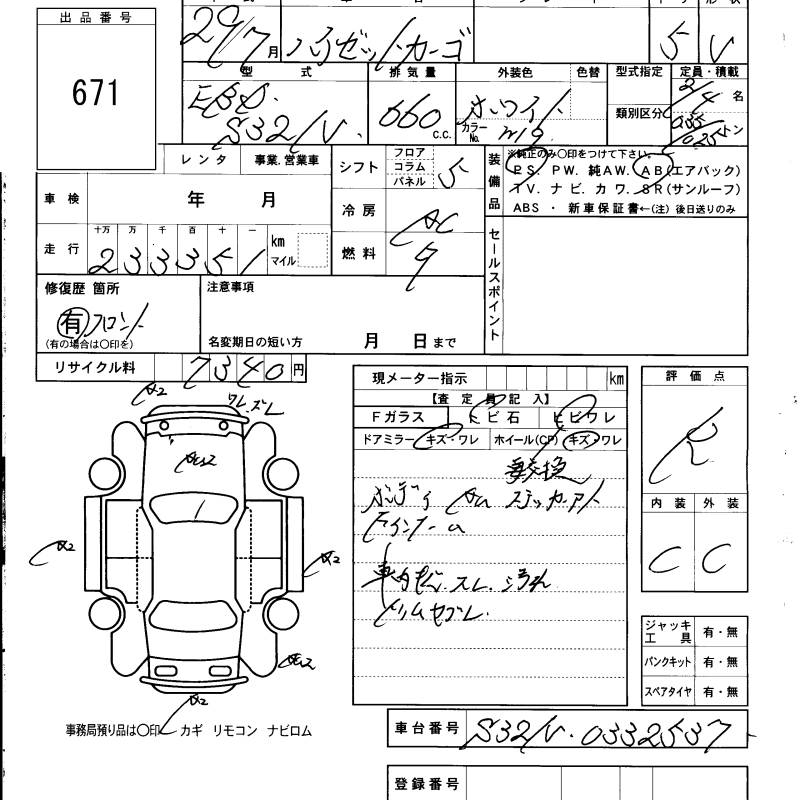 出品番号
671
29/7月 ハイゼットカーゴ 5 V
型式 排気量 外装色 色替 型式指定 定員・積載
EBD. S321V. 660 c.c. ホワイト カラーNo. W19 類別区分 2/4 名
0.35/0.25 トン
レンタ 事業、営業車 シフト フロア コラム パネル 5
装備品
※純正のみ〇印をつけて下さい。
PS. PW. 純AW. AB(エアバック)
TV. ナビ. カワ. SR(サンルーフ)
ABS ・ 新車保証書←(注) 後日送りのみ
車検 年 月 冷房 AC
走行 十万 万 千 百 十 一
233351 km マイル 燃料 ガ
セールスポイント
修復歴 箇所
有 フロント
(有の場合は〇印を)
注意事項
名変期日の短い方 月 日まで
リサイクル料 7340円
現メーター指示 km
【査定員記入】
Fガラス トビ石 ヒビワレ
ドアミラー キズ・ワレ ホイール(CP) キズ・ワレ
要交換
ボディ ステッカーアト
車内 スレ. 汚れ
評価点
R
内装 外装
C C
ワレ.ズレ
A2
A2
A2
A2
ジャッキ工具 有・無
パンクキット 有・無
スペアタイヤ 有・無
事務局預り品は〇印 カギ リモコン ナビロム
車台番号 S321V-0332537
登録番号